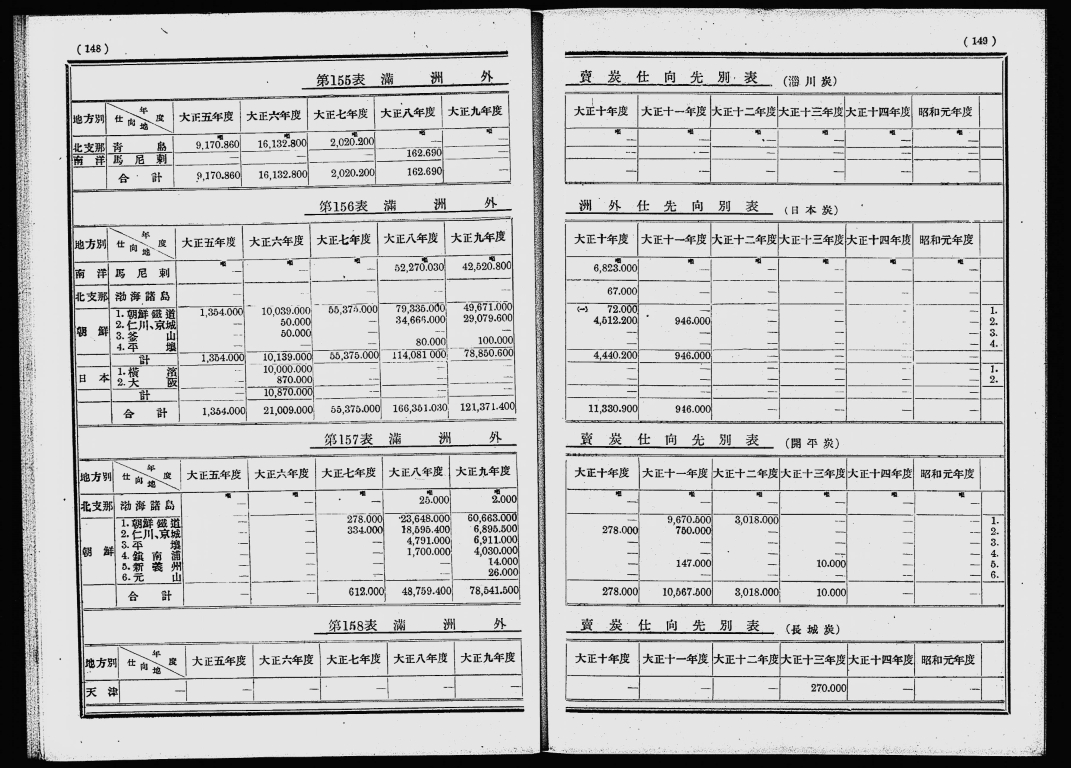 (148)
第155表 滿洲外
地方別 年度 仕向地 大正五年度 大正六年度 大正七年度 大正八年度 大正九年度
噸 噸 噸 噸 噸
北支那 青島 9,170.860 16,132.800 2,020.200 — —
南洋 馬尼剌 — — — 162.690 —
合計 9,170.860 16,132.800 2,020.200 162.690 —
第156表 滿洲外
地方別 年度 仕向地 大正五年度 大正六年度 大正七年度 大正八年度 大正九年度
噸 噸 噸 噸 噸
南洋 馬尼剌 — — — 52,270.030 42,520.800
北支那 渤海諸島 — — — — —
朝鮮 1.朝鮮鐵道 1,354.000 10,039.000 55,375.000 79,335.000 49,671.000
2.仁川、京城 — 50.000 — 34,666.000 29,079.600
3.釜山 — 50.000 — — —
4.平壤 — — — 80.000 100.000
計 1,354.000 10,139.000 55,375.000 114,081.000 78,850.600
日本 1.橫濱 — 10,000.000 — — —
2.大阪 — 870.000 — — —
計 — 10,870.000 — — —
合計 1,354.000 21,009.000 55,375.000 166,351.030 121,371.400
第157表 滿洲外
地方別 年度 仕向地 大正五年度 大正六年度 大正七年度 大正八年度 大正九年度
噸 噸 噸 噸 噸
北支那 渤海諸島 — — — 25.000 2.000
朝鮮 1.朝鮮鐵道 — — 278.000 23,648.000 60,663.000
2.仁川、京城 — — 334.000 18,595.400 6,895.500
3.平壤 — — — 4,791.000 6,911.000
4.鎭南浦 — — — 1,700.000 4,030.000
5.新義州 — — — — 14.000
6.元山 — — — — 26.000
合計 — — 612.000 48,759.400 78,541.500
第158表 滿洲外
地方別 年度 仕向地 大正五年度 大正六年度 大正七年度 大正八年度 大正九年度
天津 — — — — —
(149)
賣炭仕向先別表 (淄川炭)
大正十年度 大正十一年度 大正十二年度 大正十三年度 大正十四年度 昭和元年度
噸 噸 噸 噸 噸 噸
— — — — — —
— — — — — —
— — — — — —
洲外仕先向別表 (日本炭)
大正十年度 大正十一年度 大正十二年度 大正十三年度 大正十四年度 昭和元年度
噸 噸 噸 噸 噸 噸
6,823.000 — — — — —
67.000 — — — — —
(−) 72.000 — — — — — 1.
4,512.200 946.000 — — — — 2.
— — — — — — 3.
— — — — — — 4.
4,440.200 946.000 — — — —
— — — — — — 1.
— — — — — — 2.
— — — — — —
11,330.900 946.000 — — — —
賣炭仕向先別表 (開平炭)
大正十年度 大正十一年度 大正十二年度 大正十三年度 大正十四年度 昭和元年度
噸 噸 噸 噸 噸 噸
— — — — — —
— 9,670.500 3,018.000 — — — 1.
278.000 750.000 — — — — 2.
— — — — — — 3.
— — — — — — 4.
— 147.000 — 10.000 — — 5.
— — — — — — 6.
278.000 10,567.500 3,018.000 10.000 — —
賣炭仕向先別表 (長城炭)
大正十年度 大正十一年度 大正十二年度 大正十三年度 大正十四年度 昭和元年度
— — — 270.000 — —